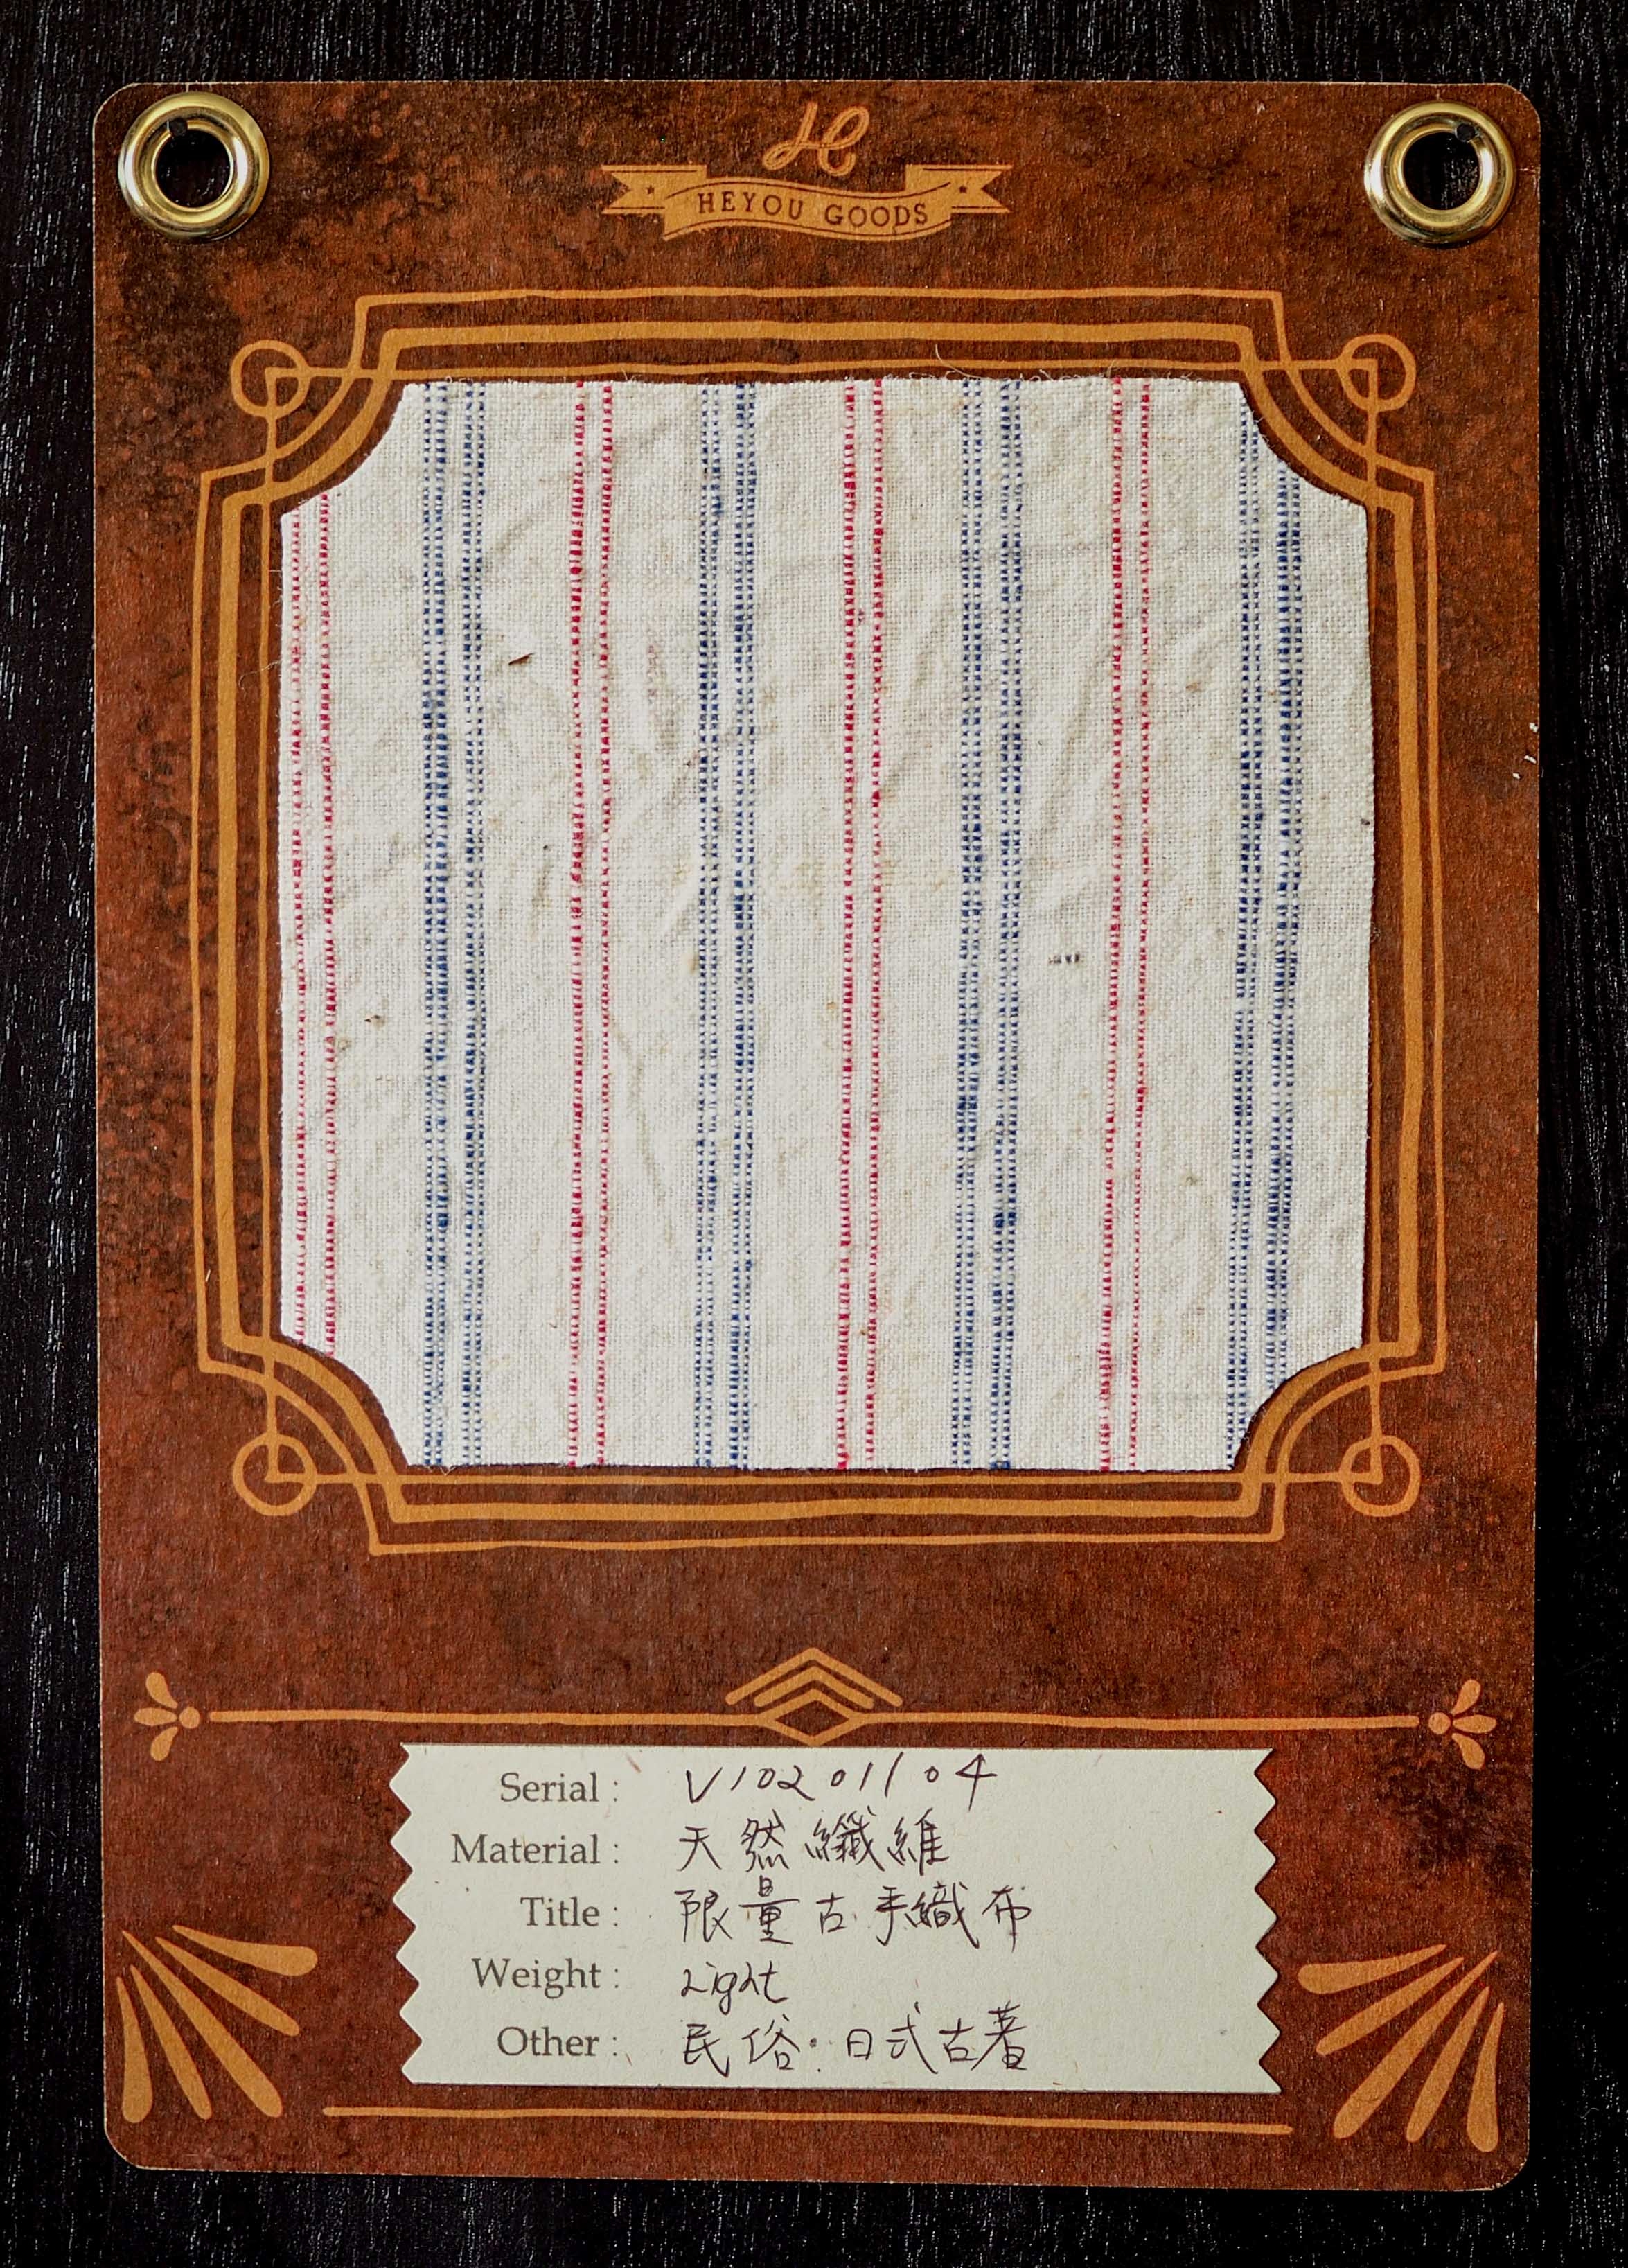 H
HEYOU GOODS
Serial : V102 01104
Material : 天然纖維
Title : 限量古手織布
Weight : Light
Other : 民俗·日式古著